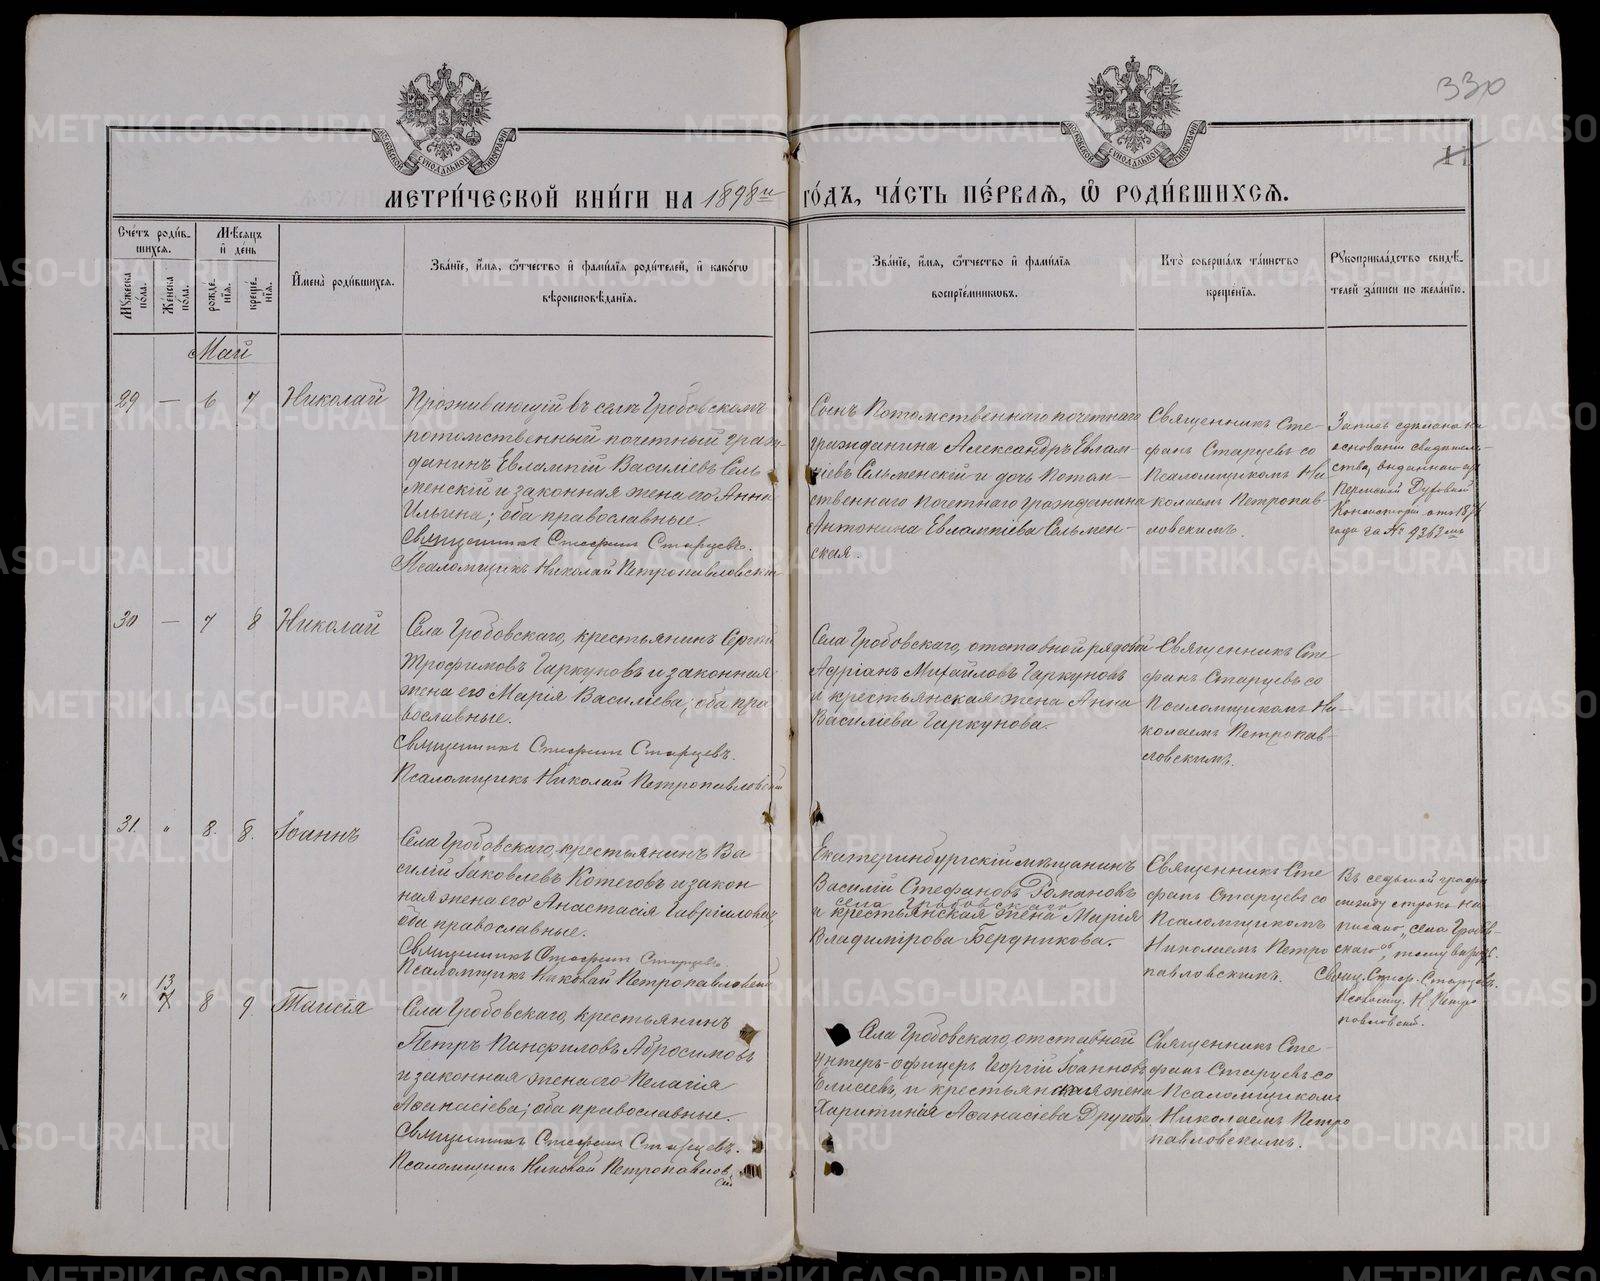 330
11
МОСКОВСКОЙ СѴНОДАЛЬНОЙ ТИПОГРАФІИ
МОСКОВСКОЙ СѴНОДАЛЬНОЙ ТИПОГРАФІИ
МЕТРИ́ЧЕСКОЙ КНИ́ГИ НА 1898й ГО́ДЪ, ЧА́СТЬ ПЕ́РВАѦ, Ѽ РОДИ́ВШИХСѦ.
Сче́тъ роди́в-
шихсѧ.
Мꙋ́жеска по́ла.
Же́нска по́ла.
Мѣ́сѧцъ
и҆ де́нь
рожде́нїѧ.
креще́нїѧ.
И҆мена̀ роди́вшихсѧ.
Зва́нїе, и҆́мѧ, ѻ҆́тчество и҆ фами́лїѧ роди́телей, и҆ како́гѡ
вѣроисповѣ́данїѧ.
Зва́нїе, и҆́мѧ, ѻ҆́тчество и҆ фами́лїѧ
воспрїе́мникѡвъ.
Кто̀ соверша́лъ та́инство
креще́нїѧ.
Рꙋкоприкла́дство свидѣ́-
телей за́писи по жела́нїю.
Май
29 — 6 7 Николай
Проживающій въ селѣ Гробовскомъ
потомственный почетный граж-
данинъ Евлампій Василіевъ Сель-
менскій и законная жена его Анна
Ильина; оба православные.
Священникъ Стефанъ Старцевъ.
Псаломщикъ Николай Петропавловскій
Сынъ Потомственнаго почетнаго
гражданина Александръ Евлам-
піевъ Сельменскій и дочь Потом-
ственнаго почетнаго гражданина
Антонина Евлампіева Сельмен-
ская.
Священникъ Сте-
фанъ Старцевъ со
Псаломщикомъ Ни-
колаемъ Петропав-
ловскимъ.
Запись сдѣлана на
основаніи свидѣтель-
ства, выданнаго изъ
Пермской Духовной
Консисторіи отъ
года за № 9262мъ
30 — 7 8 Николай
Села Гробовскаго, крестьянинъ Сергій
Трофимовъ Гаркуновъ и законная
жена его Марія Василіева; оба пра-
вославные.
Священникъ Стефанъ Старцевъ.
Псаломщикъ Николай Петропавловскій
Села Гробовскаго, отставной рядовой
Адріанъ Михайловъ Гаркуновъ
и крестьянская жена Анна
Василіева Гаркунова.
Священникъ Сте-
фанъ Старцевъ со
Псаломщикомъ Ни-
колаемъ Петропав-
ловскимъ.
31. " 8. 8. Іоаннъ
Села Гробовскаго, крестьянинъ Ва-
силій Іаковлевъ Котеговъ и закон-
ная жена его Анастасія Гавріилова;
оба православные.
Священникъ Стефанъ Старцевъ.
Псаломщикъ Николай Петропавловскій
Екатеринбургскій мѣщанинъ
Василій Стефановъ Романовъ
села Гробовскаго
и крестьянская жена Марія
Владимірова Бердникова.
Священникъ Сте-
фанъ Старцевъ со
Псаломщикомъ
Николаемъ Петро-
павловскимъ.
Въ седьмой графѣ
между строкъ на-
писано „села Гробов-
скаго“, тому вѣрить.
Свящ. Стеф. Старцевъ.
Псаломщ. Н. Петро-
павловскій.
" 13 8 9 Таисія
Села Гробовскаго, крестьянинъ
Петръ Панфиловъ Абросимовъ
и законная жена его Пелагія
Аѳанасіева; оба православные.
Священникъ Стефанъ Старцевъ.
Псаломщикъ Николай Петропавлов-
скій
Села Гробовскаго, отставной
унтеръ-офицеръ Георгій Іоанновъ
Елисеевъ, и крестьянская жена
Харитинія Аѳанасіева Другова
Священникъ Сте-
фанъ Старцевъ со
Псаломщикомъ
Николаемъ Петро-
павловскимъ.
METRIKI.GASO-URAL.RU